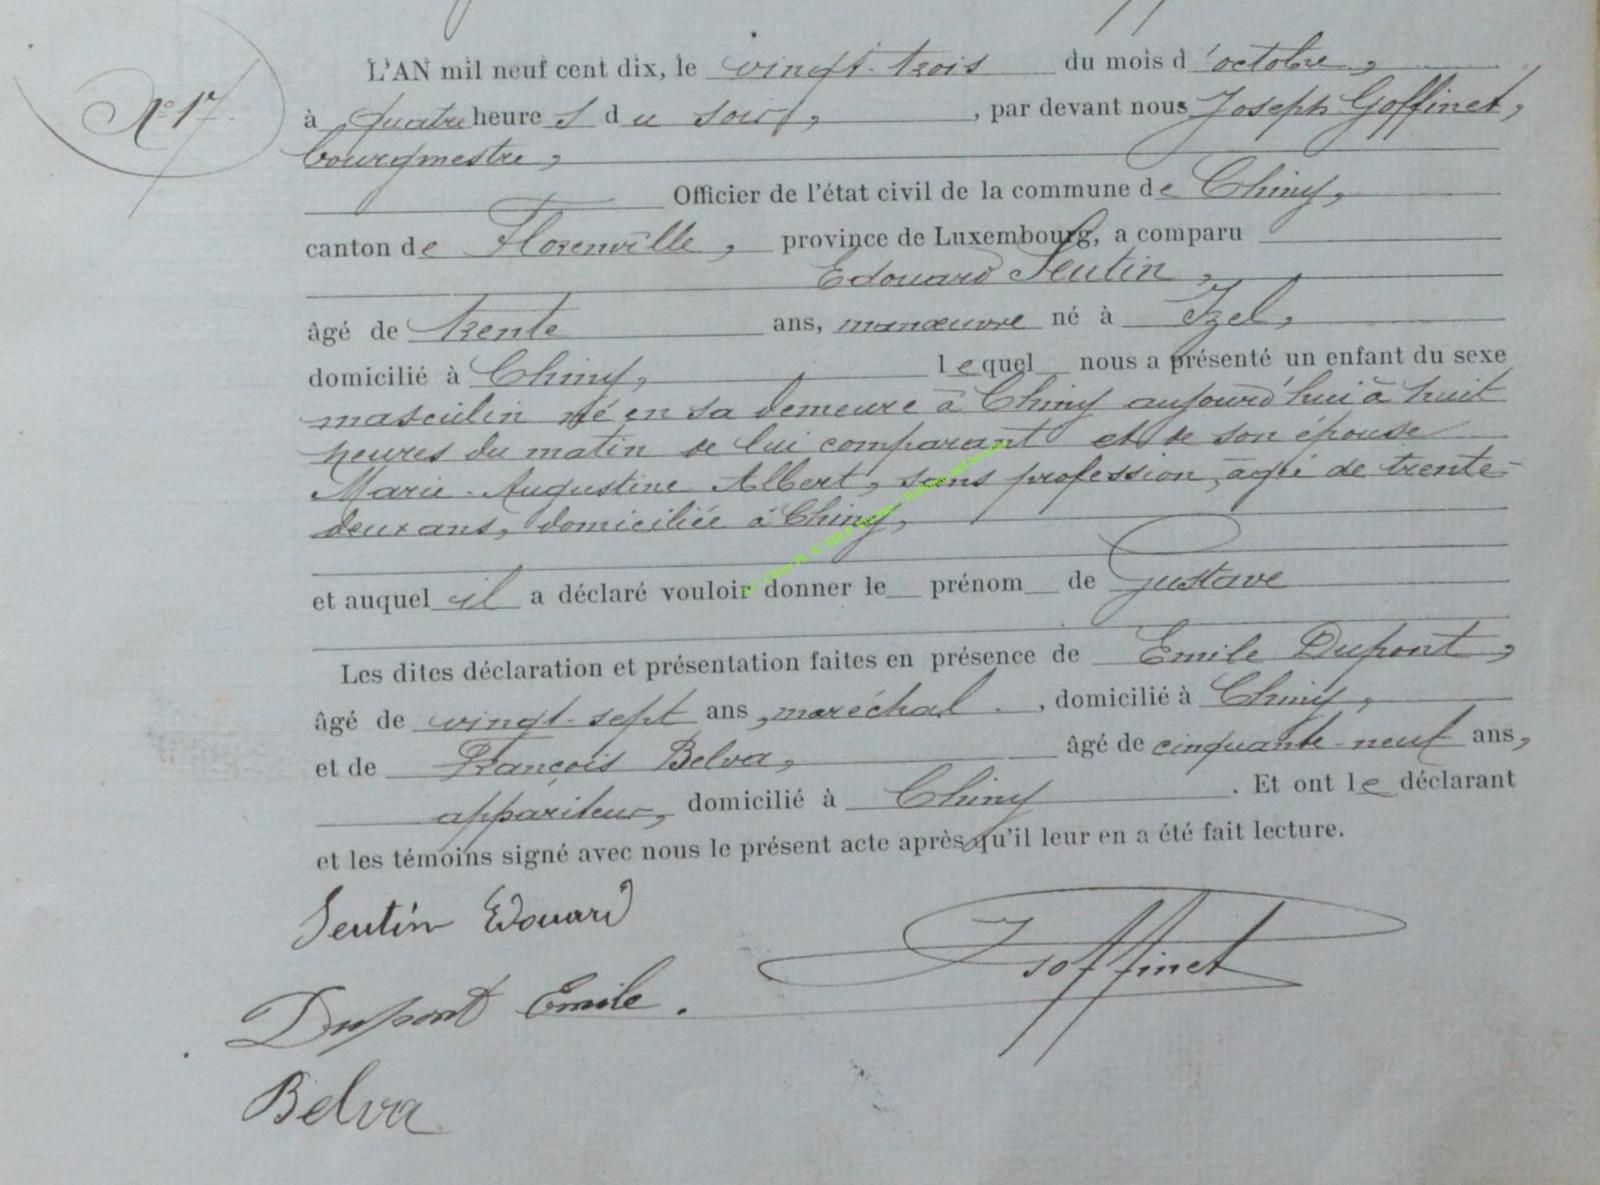 N° 17.
L'AN mil neuf cent dix, le vingt-trois du mois d'octobre,
à quatre heures du soir, , par devant nous Joseph Goffinet,
bourgmestre,
Officier de l'état civil de la commune de Chiny,
canton de Florenville, province de Luxembourg, a comparu
Edouard Seutin,
âgé de trente ans, manœuvre né à Izel,
domicilié à Chiny, lequel nous a présenté un enfant du sexe
masculin né en sa demeure à Chiny aujourd'hui à huit
heures du matin de lui comparant et de son épouse
Marie-Augustine Albert, sans profession, âgé de trente-
deux ans, domiciliée à Chiny,
et auquel il a déclaré vouloir donner le prénom de Gustave
Les dites déclaration et présentation faites en présence de Emile Dupont,
âgé de vingt-sept ans, maréchal. , domicilié à Chiny,
et de François Belva, âgé de cinquante-neuf ans,
appariteur, domicilié à Chiny . Et ont le déclarant
et les témoins signé avec nous le présent acte après qu'il leur en a été fait lecture.
Seutin Edouard
JGoffinet
Dupont Emile.
Belva